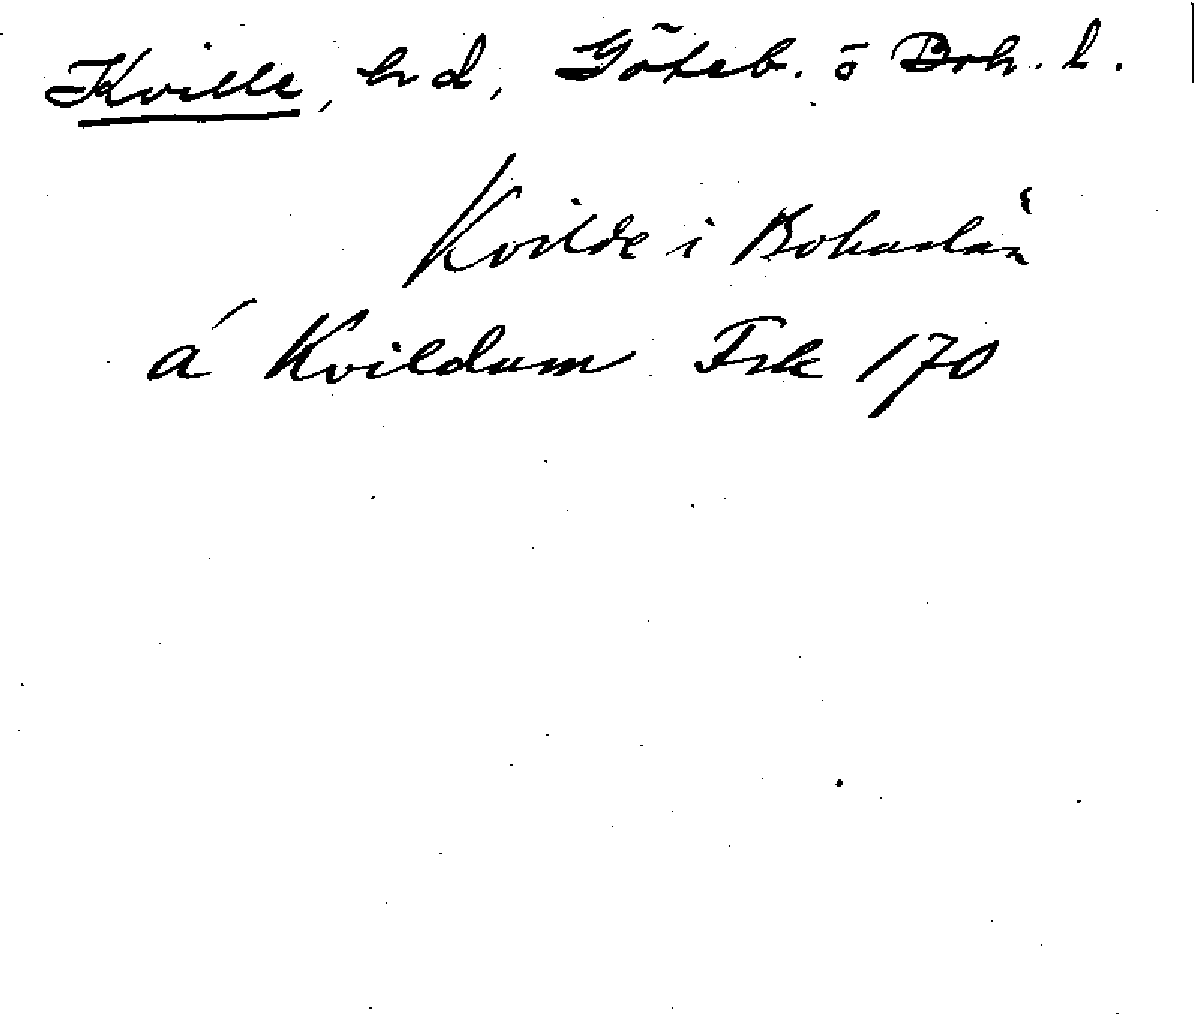 Kville, hd, Göteb. o Boh. l.
Kvilde i Bohuslän
á Kvildum Frk 170